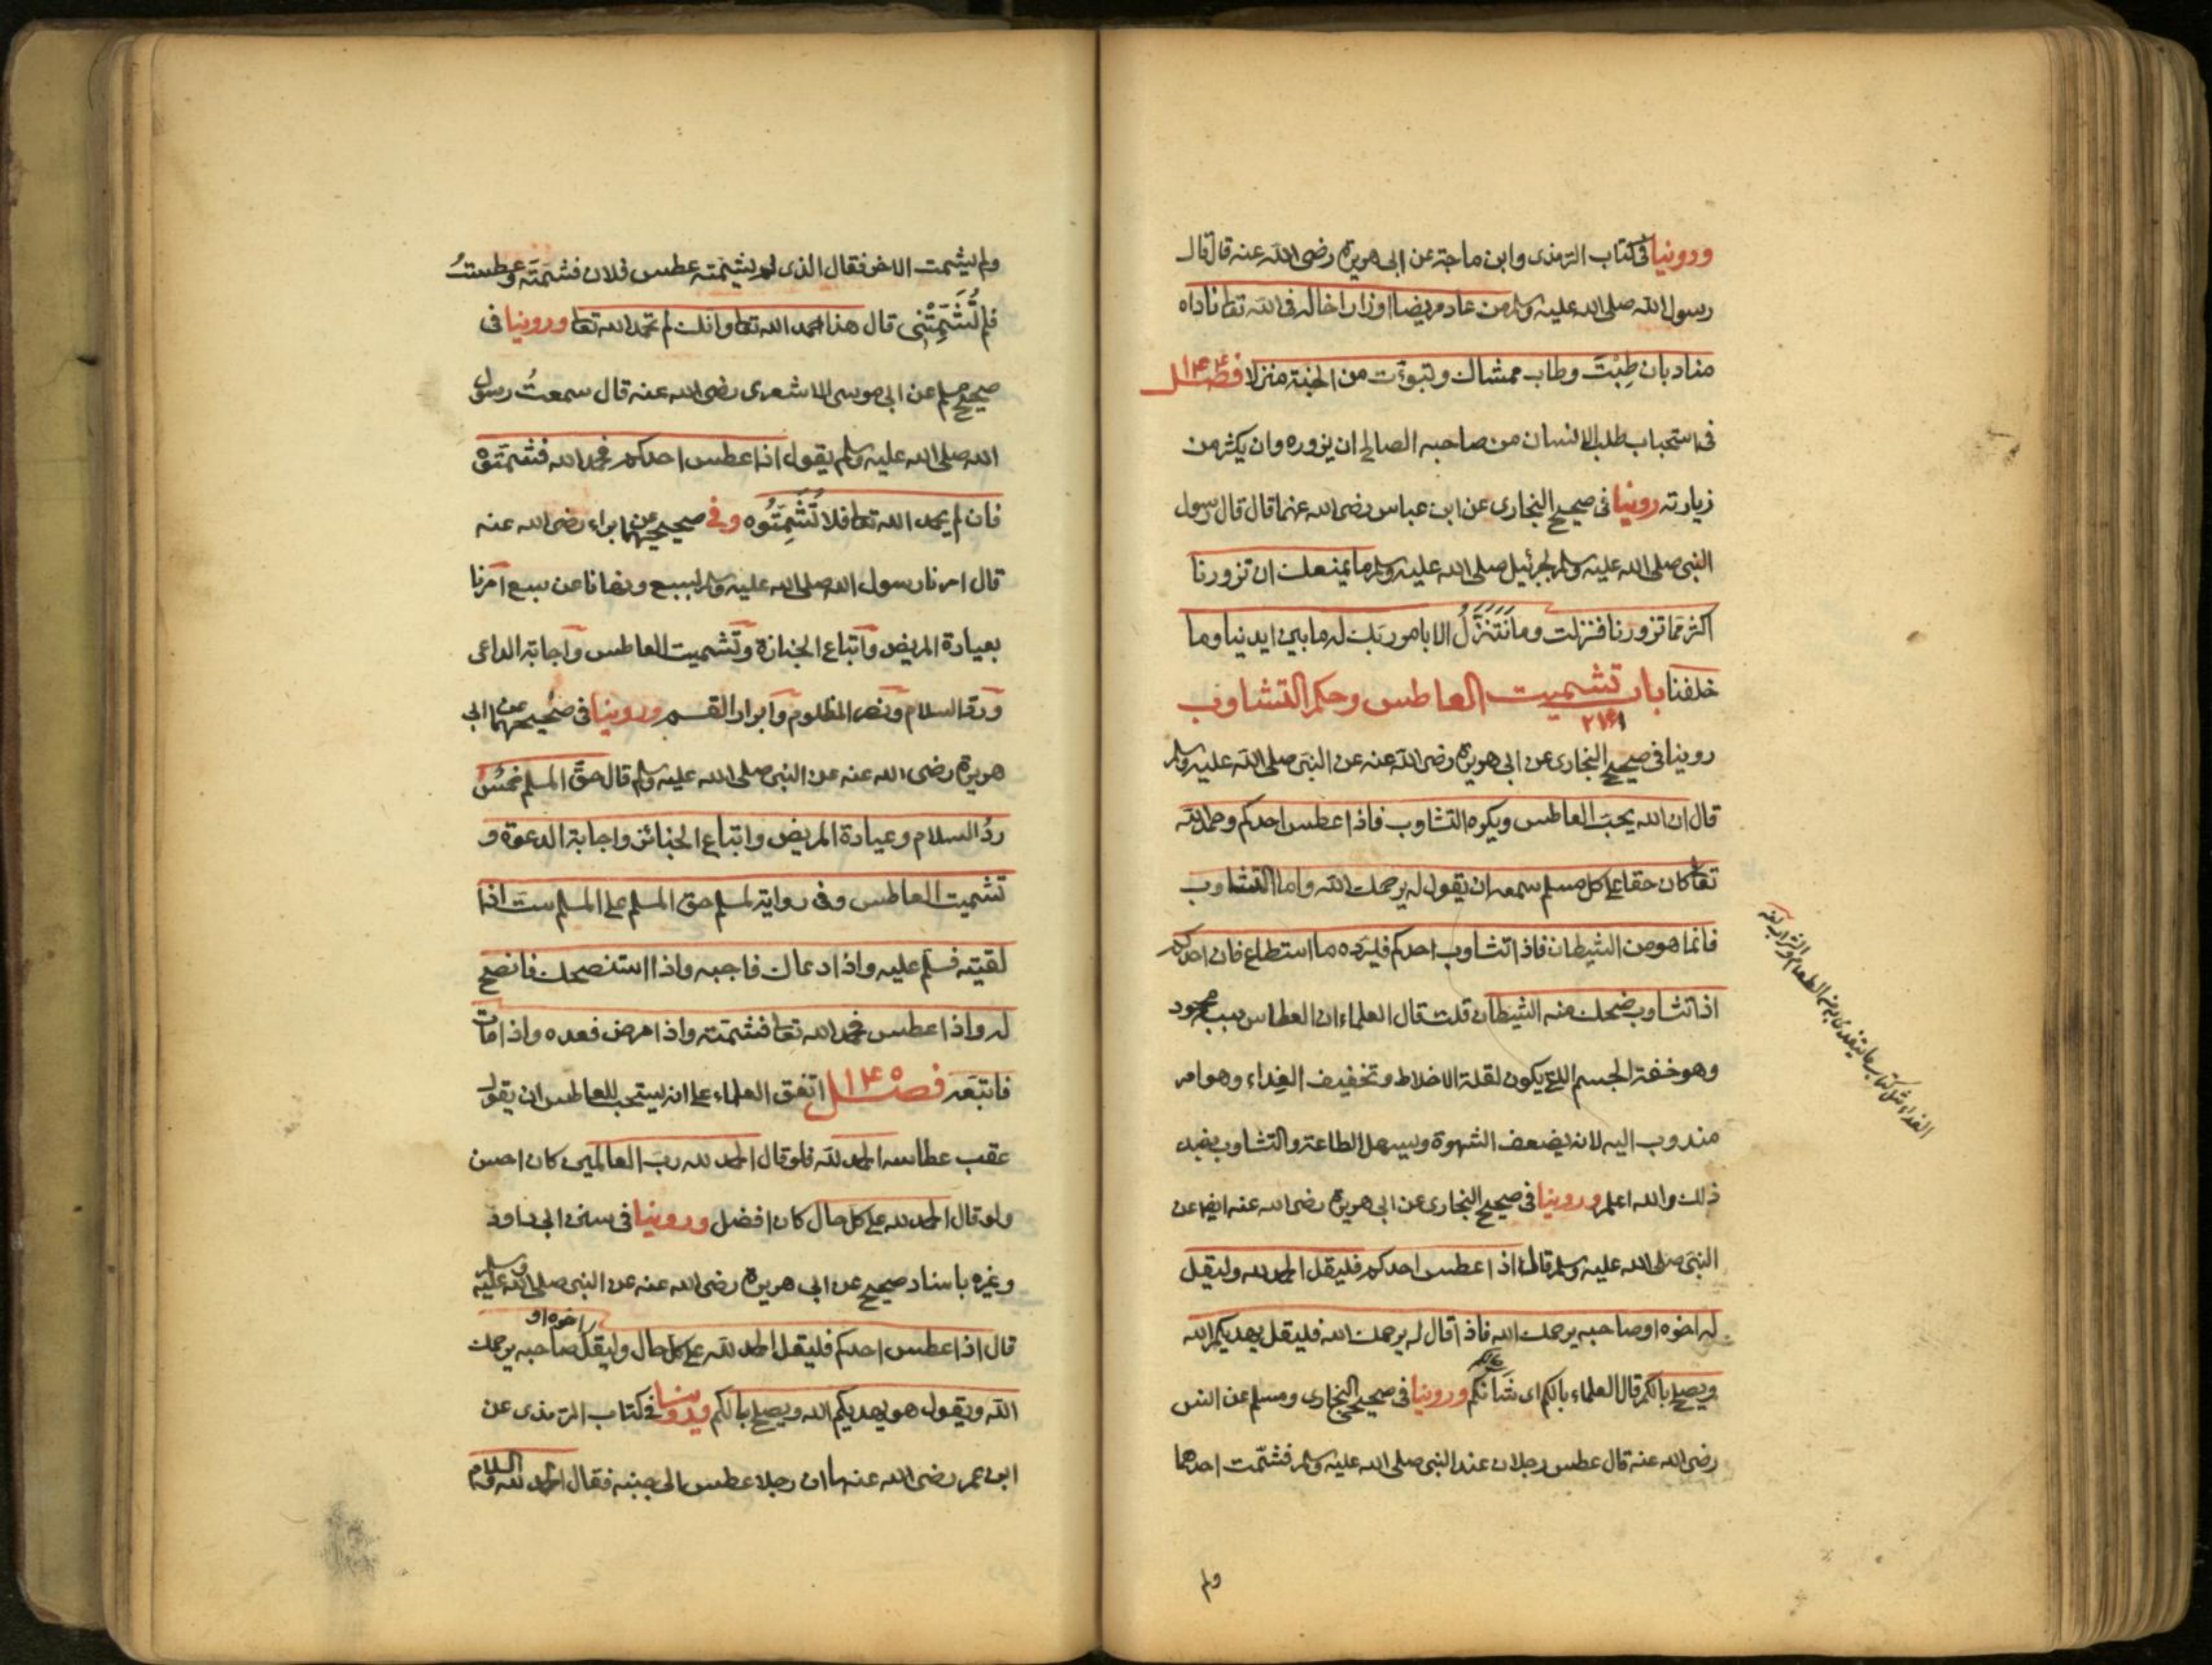 وروينا في كتاب الترمذى وابن ماجة عن ابى هريرة رضى الله عنه قال قال
رسول الله صلى الله عليه وسلم من عاد مريضا او زار اخا له فى الله تعا ناداه
مناد بان طِبْتَ وطاب ممشاك وتبوّءت من الجنة منزلا فصل
فى استحباب طلب الانسان من صاحبه الصالح ان يزوره وان يكثر من
زيارته روينا فى صحيح البخارى عن ابن عباس رضى الله عنهما قال قال رسول
النبى صلى الله عليه وسلم لجبرئيل صلى الله عليه وسلم ما يمنعك ان تزورنا
اكثر مما تزورنا فنزلت وما نَتَنَزَّلُ الا بامر ربك له ما بين ايدينا وما
خلفنا باب تشميت العاطس وحكم التثاوب
روينا فى صحيح البخارى عن ابى هريرة رضى الله عنه عن النبى صلى الله عليه وسلم
قال ان الله يحب العاطس ويكره التثاوب فاذا عطس احدكم وحمد الله
تعا كان حقا على كل مسلم سمعه ان يقول له يرحمك الله واما التثاوب
فانما هو من الشيطان فاذا تثاوب احدكم فليرده ما استطاع فان احدكم
اذا تثاوب ضحك منه الشيطان قلت قال العلماء ان العطاس سببه محمود
وهو خفة الجسم التى يكون لقلة الاخلاط وتخفيف الغذاء وهو امر
مندوب اليه لانه يضعف الشهوة ويسهل الطاعة والتثاوب بضد
ذلك والله اعلم وروينا فى صحيح البخارى عن ابى هريرة رضى الله عنه ايضا عن
النبى صلى الله عليه وسلم قال اذا عطس احدكم فليقل الحمد لله وليقل
له اخوه او صاحبه يرحمك الله فاذا قال له يرحمك الله فليقل يهديكم الله
ويصلح بالكم قال العلماء بالكم اى شَأنكم وروينا فى صحيحى البخارى ومسلم عن انس
رضى الله عنه قال عطس رجلان عند النبى صلى الله عليه وسلم فشمّت احدهما
ولم
ولم يشمت الاخر فقال الذى لم يشمته عطس فلان فشمّته وعطستُ
فلم تُشَمِّتْنِى قال هذا حمد الله تعا وانك لم تحمد الله تعا وروينا فى
صحيح مسلم عن ابى موسى الاشعرى رضى الله عنه قال سمعتُ رسول
الله صلى الله عليه وسلم يقول اذا عطس احدكم فحمد الله فشمتوه
فان لم يحمد الله تعا فلا تُشَمِّتُوه وفى صحيحيهما عن البراء رضى الله عنه
قال امرنا رسول الله صلى الله عليه وسلم بسبع ونهانا عن سبع امرنا
بعيادة المريض واتباع الجنازة وتشميت العاطس واجابة الداعى
ورد السلام ونصر المظلوم وابرار القسم وروينا فى صحيحيهما عن ابى
هريرة رضى الله عنه عن النبى صلى الله عليه وسلم قال حق المسلم خمسٌ
ردُ السلام وعيادة المريض واتباع الجنائز واجابة الدعوة و
تشميت العاطس وفى رواية لمسلم حق المسلم على المسلم ست اذا
لقيته فسلم عليه واذا دعاك فاجبه واذا استنصحك فانصح
له واذا عطس فحمد الله تعا فشمته واذا مرض فعده واذا مات
فاتبعه فصل ١٤٥ اتفق العلماء على انه يستحب للعاطس ان يقول
عقب عطاسه الحمد لله فلو قال الحمد لله رب العالمين كان احسن
ولو قال الحمد لله على كل حال كان افضل وروينا فى سنن ابى داود
وغيره باسناد صحيح عن ابى هريرة رضى الله عنه عن النبى صلى الله عليه وسلم
قال اذا عطس احدكم فليقل الحمد لله على كل حال وليقل اخوه او صاحبه يرحمك
الله ويقول هو يهديكم الله ويصلح بالكم وروينا فى كتاب الترمذى عن
ابن عمر رضى الله عنهما ان رجلا عطس الى جنبه فقال الحمد لله والسلام